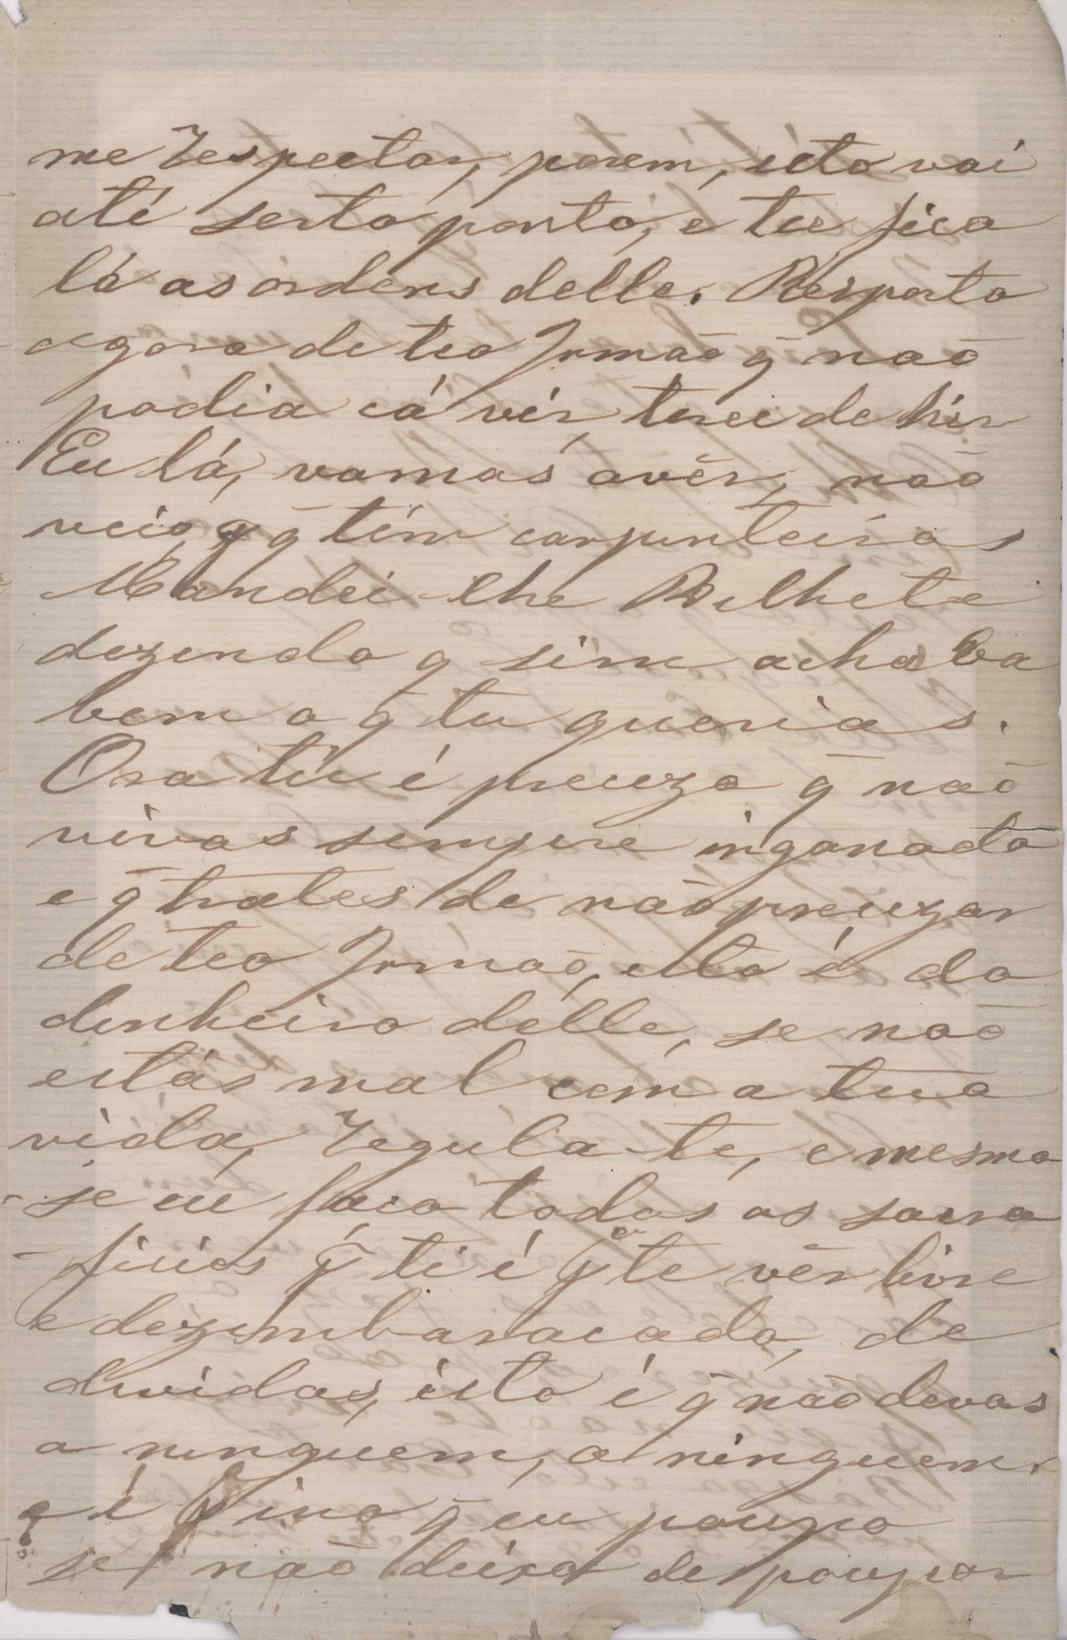 me Respectar, porem, isto vai
até serto ponto, e tu fica
lá as ordens delle. Resposta
agora de teo Irmaõ q̃ naõ
podia cá vêr, terei de hir
Eu lá, vamos avêr, naõ
veio, q̃ tem carpinteiros
Mandei-lhe Bilhete
dezendo q̃ sim achaba
bem o q̃ tu querias.
Ora tu é preuzo q̃ naõ
vivas sempre inganada
e q̃ trates de naõ preuzar
de teo Irmaõ, isto é do
dinheiro delle, se naõ
estás mal com a tua
vida, Regula-te, e mesmo
se eu faco todos os sacra
-ficios p̃ ti é p̃a te vêr livre
e dezembaracada, de
dividas, isto é q̃ naõ devas
a ninguem, a ninguem.
q é q̃ eu poupo
se naõ deixo de poupar